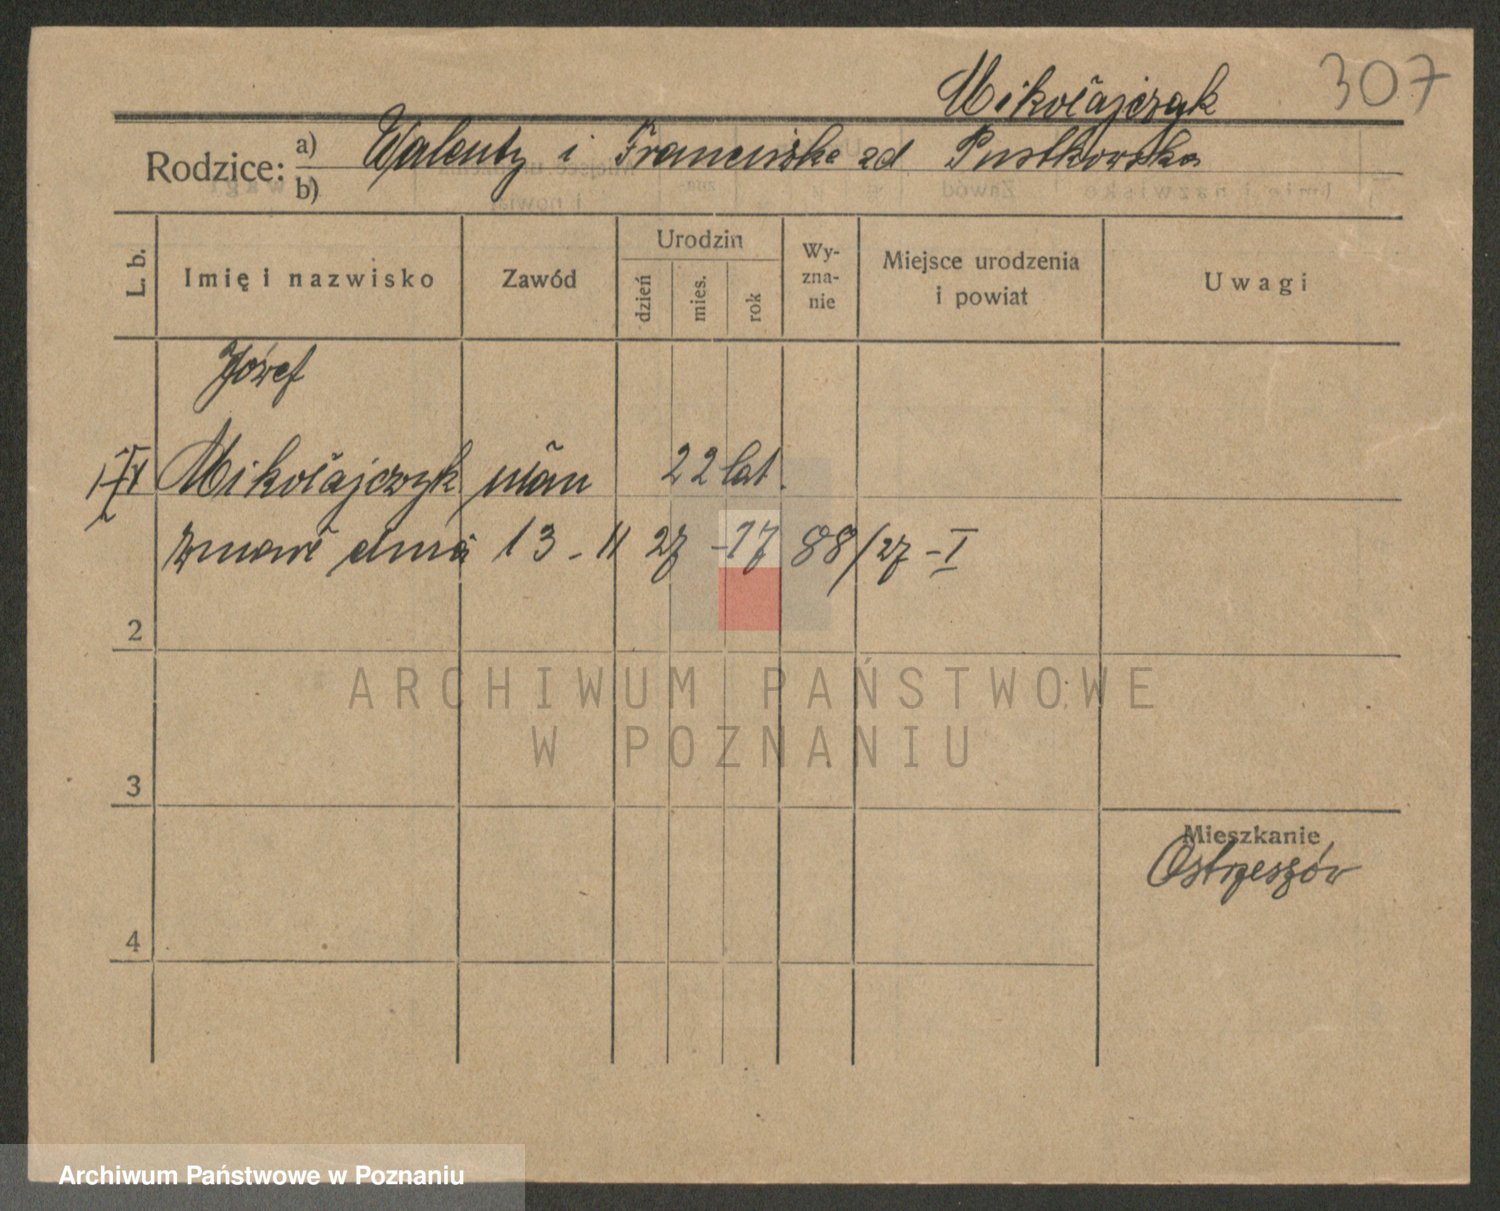 307
Mikołajczyk
Rodzice: a) Walenty i Franciszka zd Pustkowska
b)
L. b.
Imię i nazwisko
Zawód
Urodzin
dzień
mies.
rok
Wy-
zna-
nie
Miejsce urodzenia
i powiat
Uwagi
Józef
Mikołajczyk ułan 22 lat.
zmarł dnia 13-11 27 -17 88/27 - I
2
3
4
Mieszkanie
Ostrzeszów
ARCHIWUM PAŃSTWOWE
W POZNANIU
Archiwum Państwowe w Poznaniu